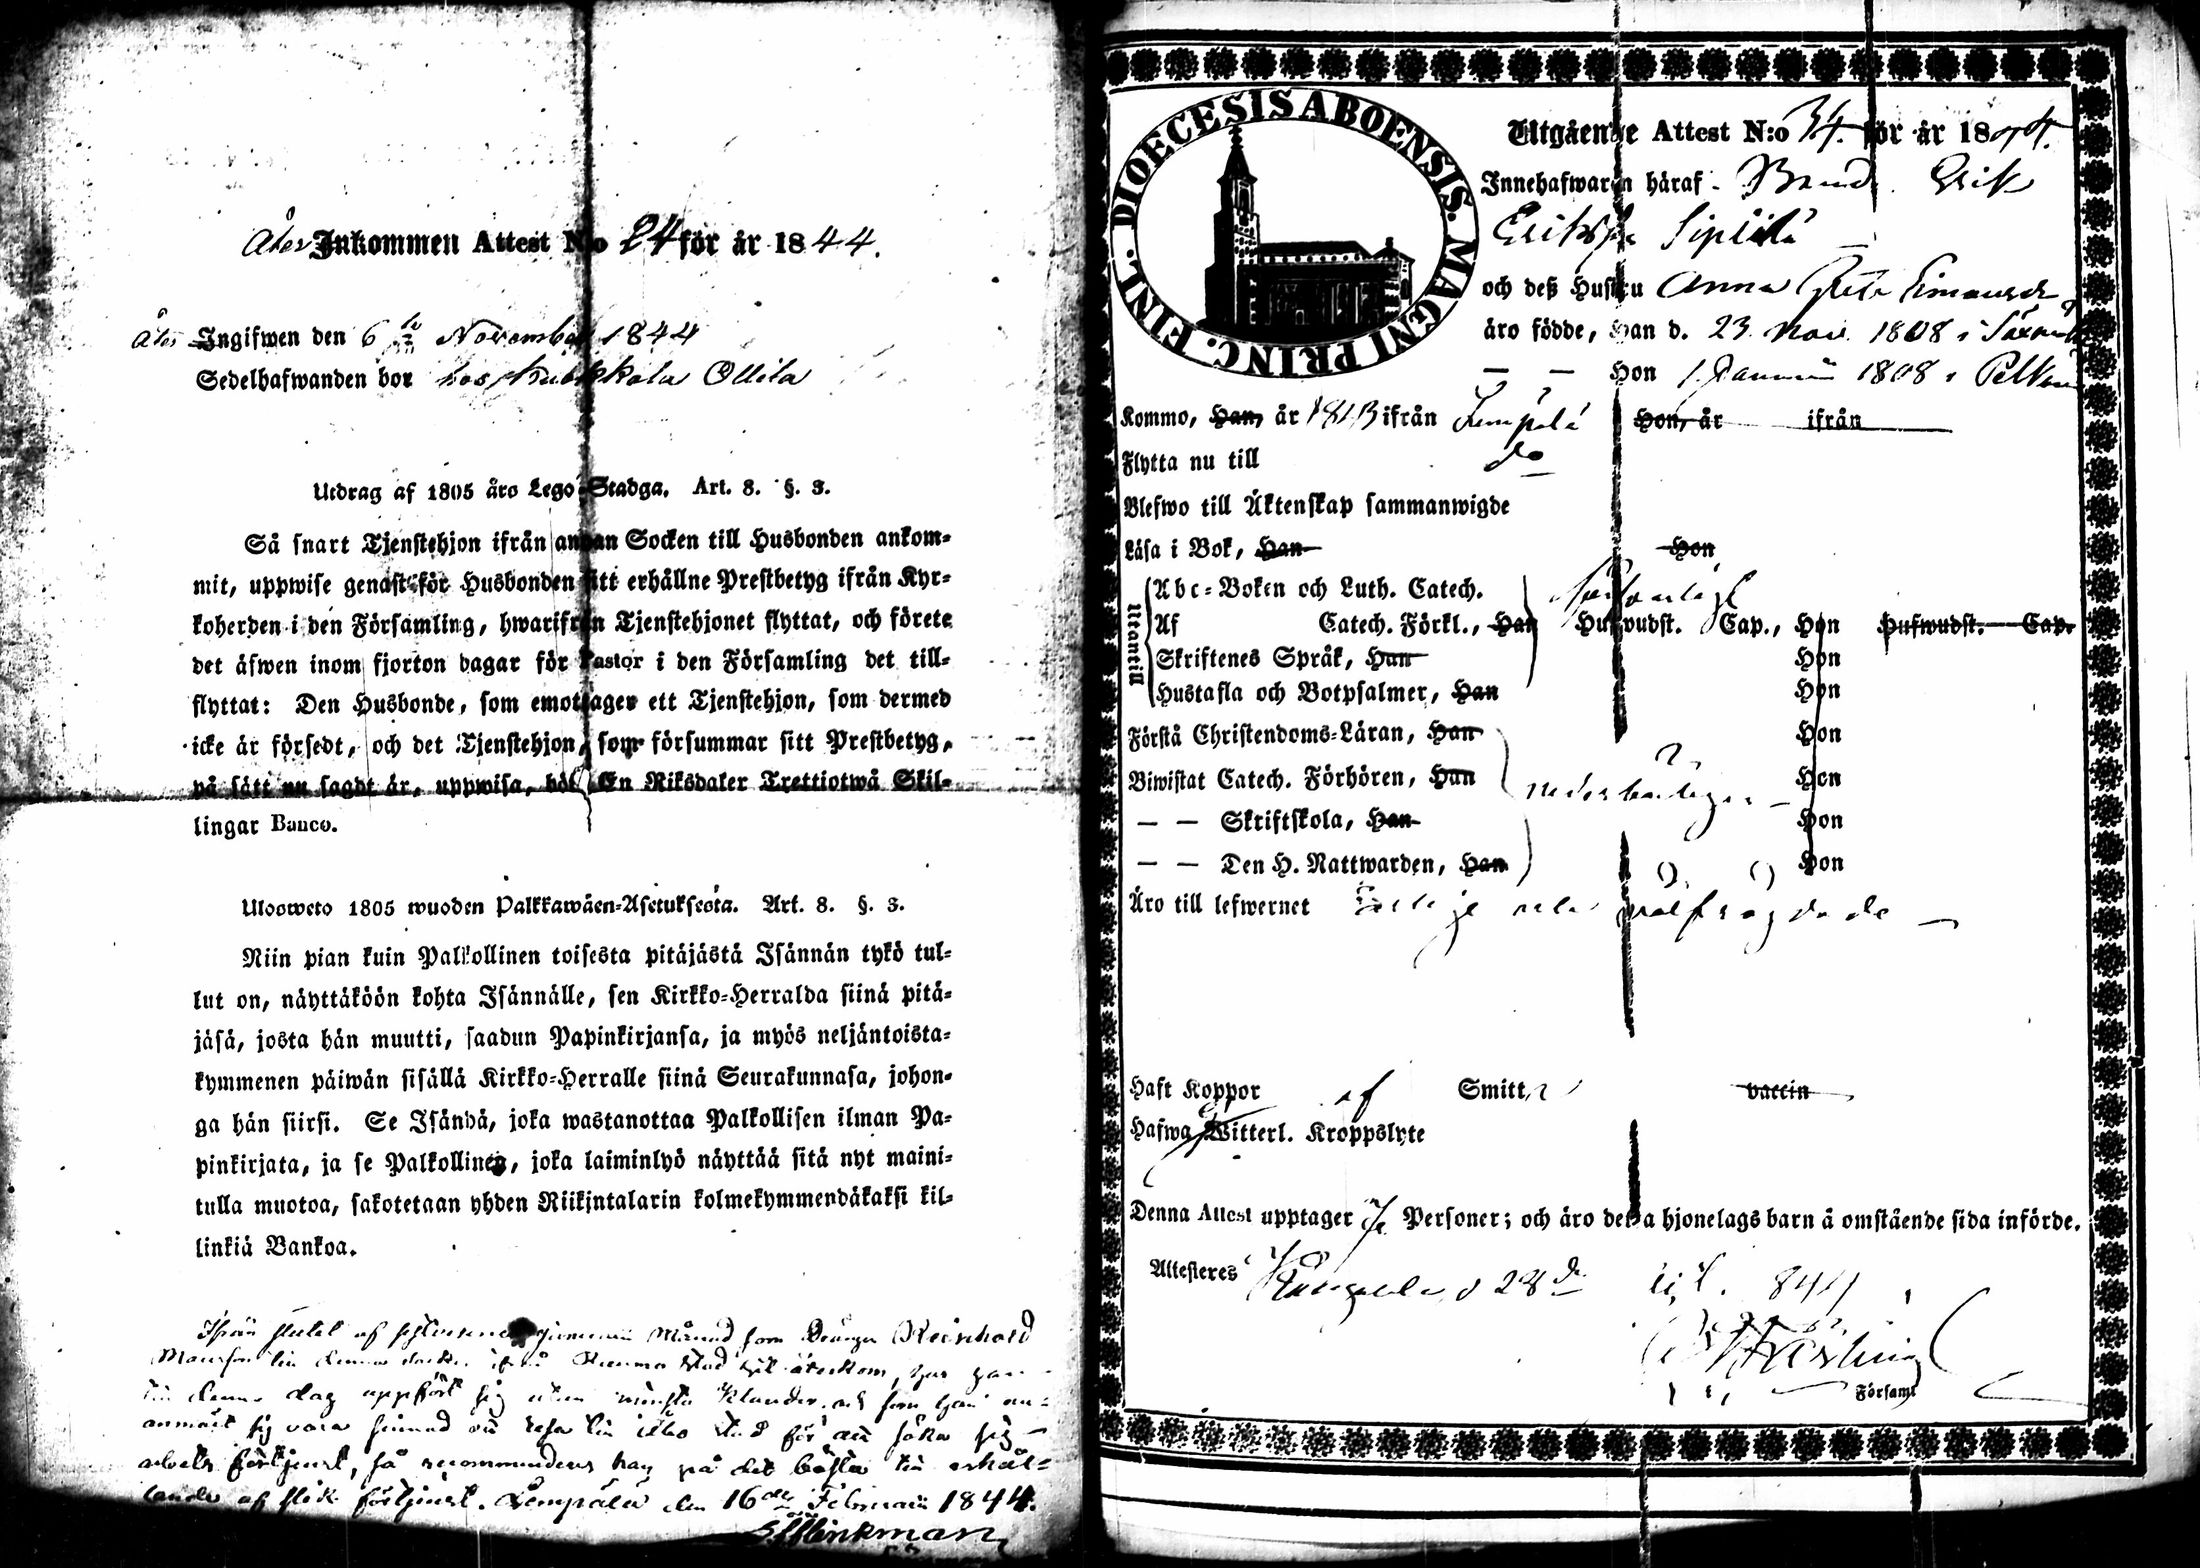 Åter Inkommen Attest N:o 24 för år 1844.
Åter Ingifwen den 6 November 1844
Sedelhafwanden bor hos Kuokkala Ollila
Utdrag af 1805 års Lego-Stadga. Art. 8. §. 3.
Så snart Tjenstehjon ifrån annan Socken till Husbonden ankom-
mit, uppwise genast för Husbonden sitt erhållne Prestbetyg ifrån Kyr-
koherden i den Församling, hwarifrån Tjenstehjonet flyttat, och förete
det äfwen inom fjorton dagar för Pastor i den Församling det till-
flyttat: Den Husbonde, som emottager ett Tjenstehjon, som dermed
icke är försedt, och det Tjenstehjon, som försummar sitt Prestbetyg,
på sätt nu sagdt är, uppwisa, böt En Riksdaler Trettiotwå Skil-
lingar Banco.
Ulosweto 1805 wuoden Palkkawäen-Asetuksesta. Art. 8. §. 3.
Niin pian kuin Palkollinen toisesta pitäjästä Isännän tykö tul-
lut on, näyttäköön kohta Isännälle, sen Kirkko-Herralda siinä pitä-
jäsä, josta hän muutti, saadun Papinkirjansa, ja myös neljäntoista-
kymmenen päiwän sisällä Kirkko-Herralle siinä Seurakunnasa, johon-
ga hän siirsi. Se Isändä, joka wastanottaa Palkollisen ilman Pa-
pinkirjata, ja se Palkollinen, joka laiminlyö näyttää sitä nyt maini-
tulla muotoa, sakotetaan yhden Riikintalarin kolmekymmendäkaksi kil-
linkiä Bankoa.
Ifrån slutet af Månad som Drängen Reinhard
Mansson till denna stad återkom, har han
till denna dag uppfört sig utan minsta klander, och som han an-
anmält sig vara sinnad att resa till Åbo stad för att söka sig
arbets förtjenst, så recommenderas han på det bästa till erhål-
lande af slik förtjenst. Lempälä den 16de Februari 1844.
DIOECESIS ABOENSIS. MAGNI PRINC. FINL.
Utgående Attest N:o 34. för år 1844.
Innehafwaren häraf Erik
Sipilä
och deß Hustru Anna Greta Simonsdr
äro födde, Han d. 23 Nov. 1808 i
— — Hon 1 Januari 1808 i
Kommo, Han, år 1843 ifrån Lempälä Hon, år ifrån
Flytta nu till do
Blefwo till Äktenskap sammanwigde
Läsa i Bok, Han Hon
Utantill
Abc-Boken och Luth. Catech. försvarligt
Af Catech. Förkl., Han Hufwudst. Cap., Hon Hufwudst. Cap.
Skriftenes Språk, Han Hon
Hustafla och Botpsalmer, Han Hon
Förstå Christendoms-Läran, Han Hon
Biwistat Catech. Förhören, Han nederbörligen Hon
— — Skriftskola, Han Hon
— — Den H. Nattwarden, Han Hon
Äro till lefwernet ärlige och wälfrägdade
Haft Koppor af Smitta vaccin
Hafwa Witterl. Kroppslyte
Denna Attest upptager Personer; och äro detta hjonelags barn å omstående sida införde.
Attesteras Kangasala d 28de
Församl